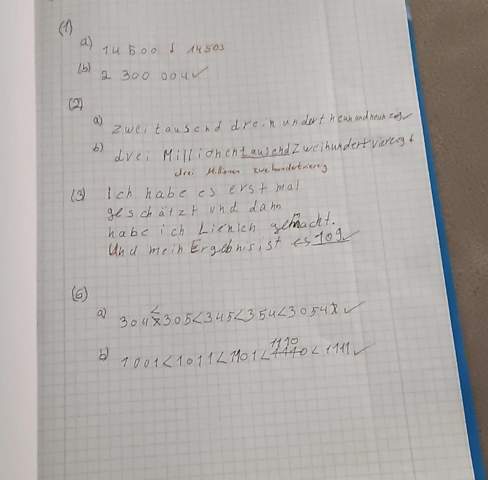 (1)
a) 14 500 f 14503
(b) 2 300 004 ✓
(2)
a) zweitausend dreihundert neunundneunzig ✓
b) drei Millionen tausend zweihundertvierzig f
drei Millionen zweihundertvierzig
(3) Ich habe es erst mal
geschätzt und dann
habe ich Lienien gemacht.
Und mein Ergebnis ist es 109 ✓
(6)
a) 304 < 305 < 345 < 354 < 3054 ✓
b) 1001 < 1011 < 1101 < 1110 < 1111 ✓